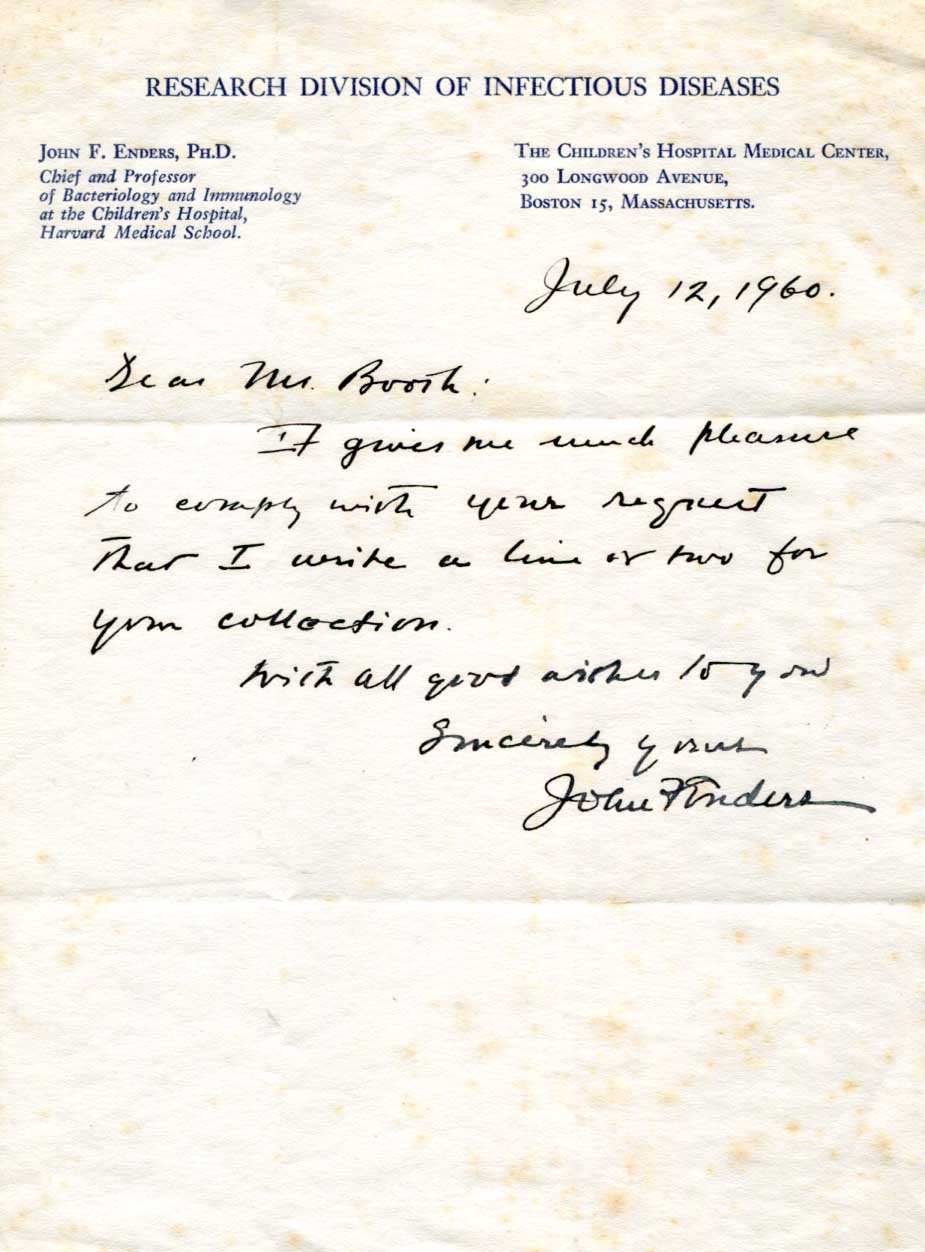 RESEARCH DIVISION OF INFECTIOUS DISEASES
JOHN F. ENDERS, PH.D.
Chief and Professor
of Bacteriology and Immunology
at the Children's Hospital,
Harvard Medical School.
THE CHILDREN'S HOSPITAL MEDICAL CENTER,
300 LONGWOOD AVENUE,
BOSTON 15, MASSACHUSETTS.
July 12, 1960.
Dear Mr. Booth:
It gives me much pleasure
to comply with your request
that I write a line or two for
your collection.
With all good wishes to you
Sincerely yours
John F Enders